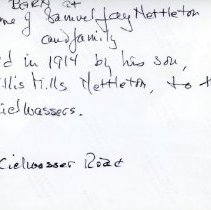 BARN at
me of Samuel Jay Nettleton
and family
d in 1914 by his son,
llis Mills Nettleton, to t
ielwassers.
Kielwasser Road